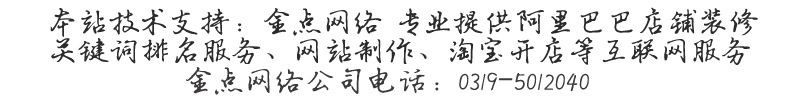 本站技术支持：金点网络 专业提供阿里巴巴店铺装修
关键词排名服务、网站制作、淘宝开店等互联网服务
金点网络公司电话：0319-5012040